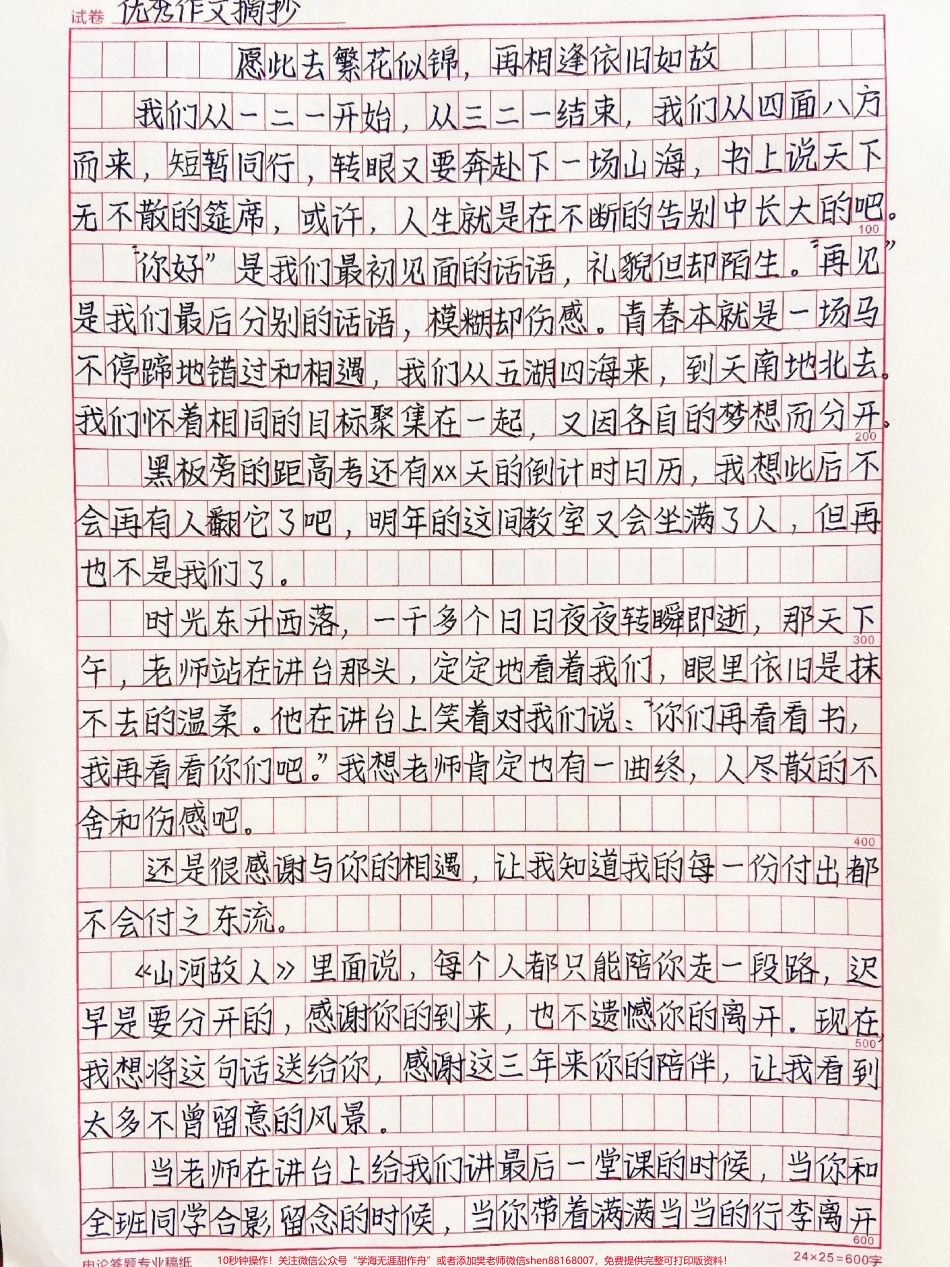 试卷 优秀作文摘抄
愿此去繁花似锦，再相逢依旧如故
我们从一二一开始，从三二一结束，我们从四面八方
而来，短暂同行，转眼又要奔赴下一场山海，书上说天下
无不散的筵席，或许，人生就是在不断的告别中长大的吧。
100
“你好”是我们最初见面的话语，礼貌但却陌生。“再见”
是我们最后分别的话语，模糊却伤感。青春本就是一场马
不停蹄地错过和相遇，我们从五湖四海来，到天南地北去。
我们怀着相同的目标聚集在一起，又因各自的梦想而分开。
200
黑板旁的距高考还有xx天的倒计时日历，我想此后不
会再有人翻它了吧，明年的这间教室又会坐满了人，但再
也不是我们了。
时光东升西落，一千多个日日夜夜转瞬即逝，那天下
300
午，老师站在讲台那头，定定地看着我们，眼里依旧是抹
不去的温柔。他在讲台上笑着对我们说：“你们再看看书，
我再看看你们吧。”我想老师肯定也有一曲终，人尽散的不
舍和伤感吧。
400
还是很感谢与你的相遇，让我知道我的每一份付出都
不会付之东流。
《山河故人》里面说，每个人都只能陪你走一段路，迟
早是要分开的，感谢你的到来，也不遗憾你的离开．现在，
500
我想将这句话送给你，感谢这三年来你的陪伴，让我看到
太多不曾留意的风景。
当老师在讲台上给我们讲最后一堂课的时候，当你和
全班同学合影留念的时候，当你带着满满当当的行李离开
600
申论答题专业稿纸 10秒钟操作！关注微信公众号“学海无涯甜作舟”或者添加樊老师微信shen88168007，免费提供完整可打印版资料！ 24×25=600字